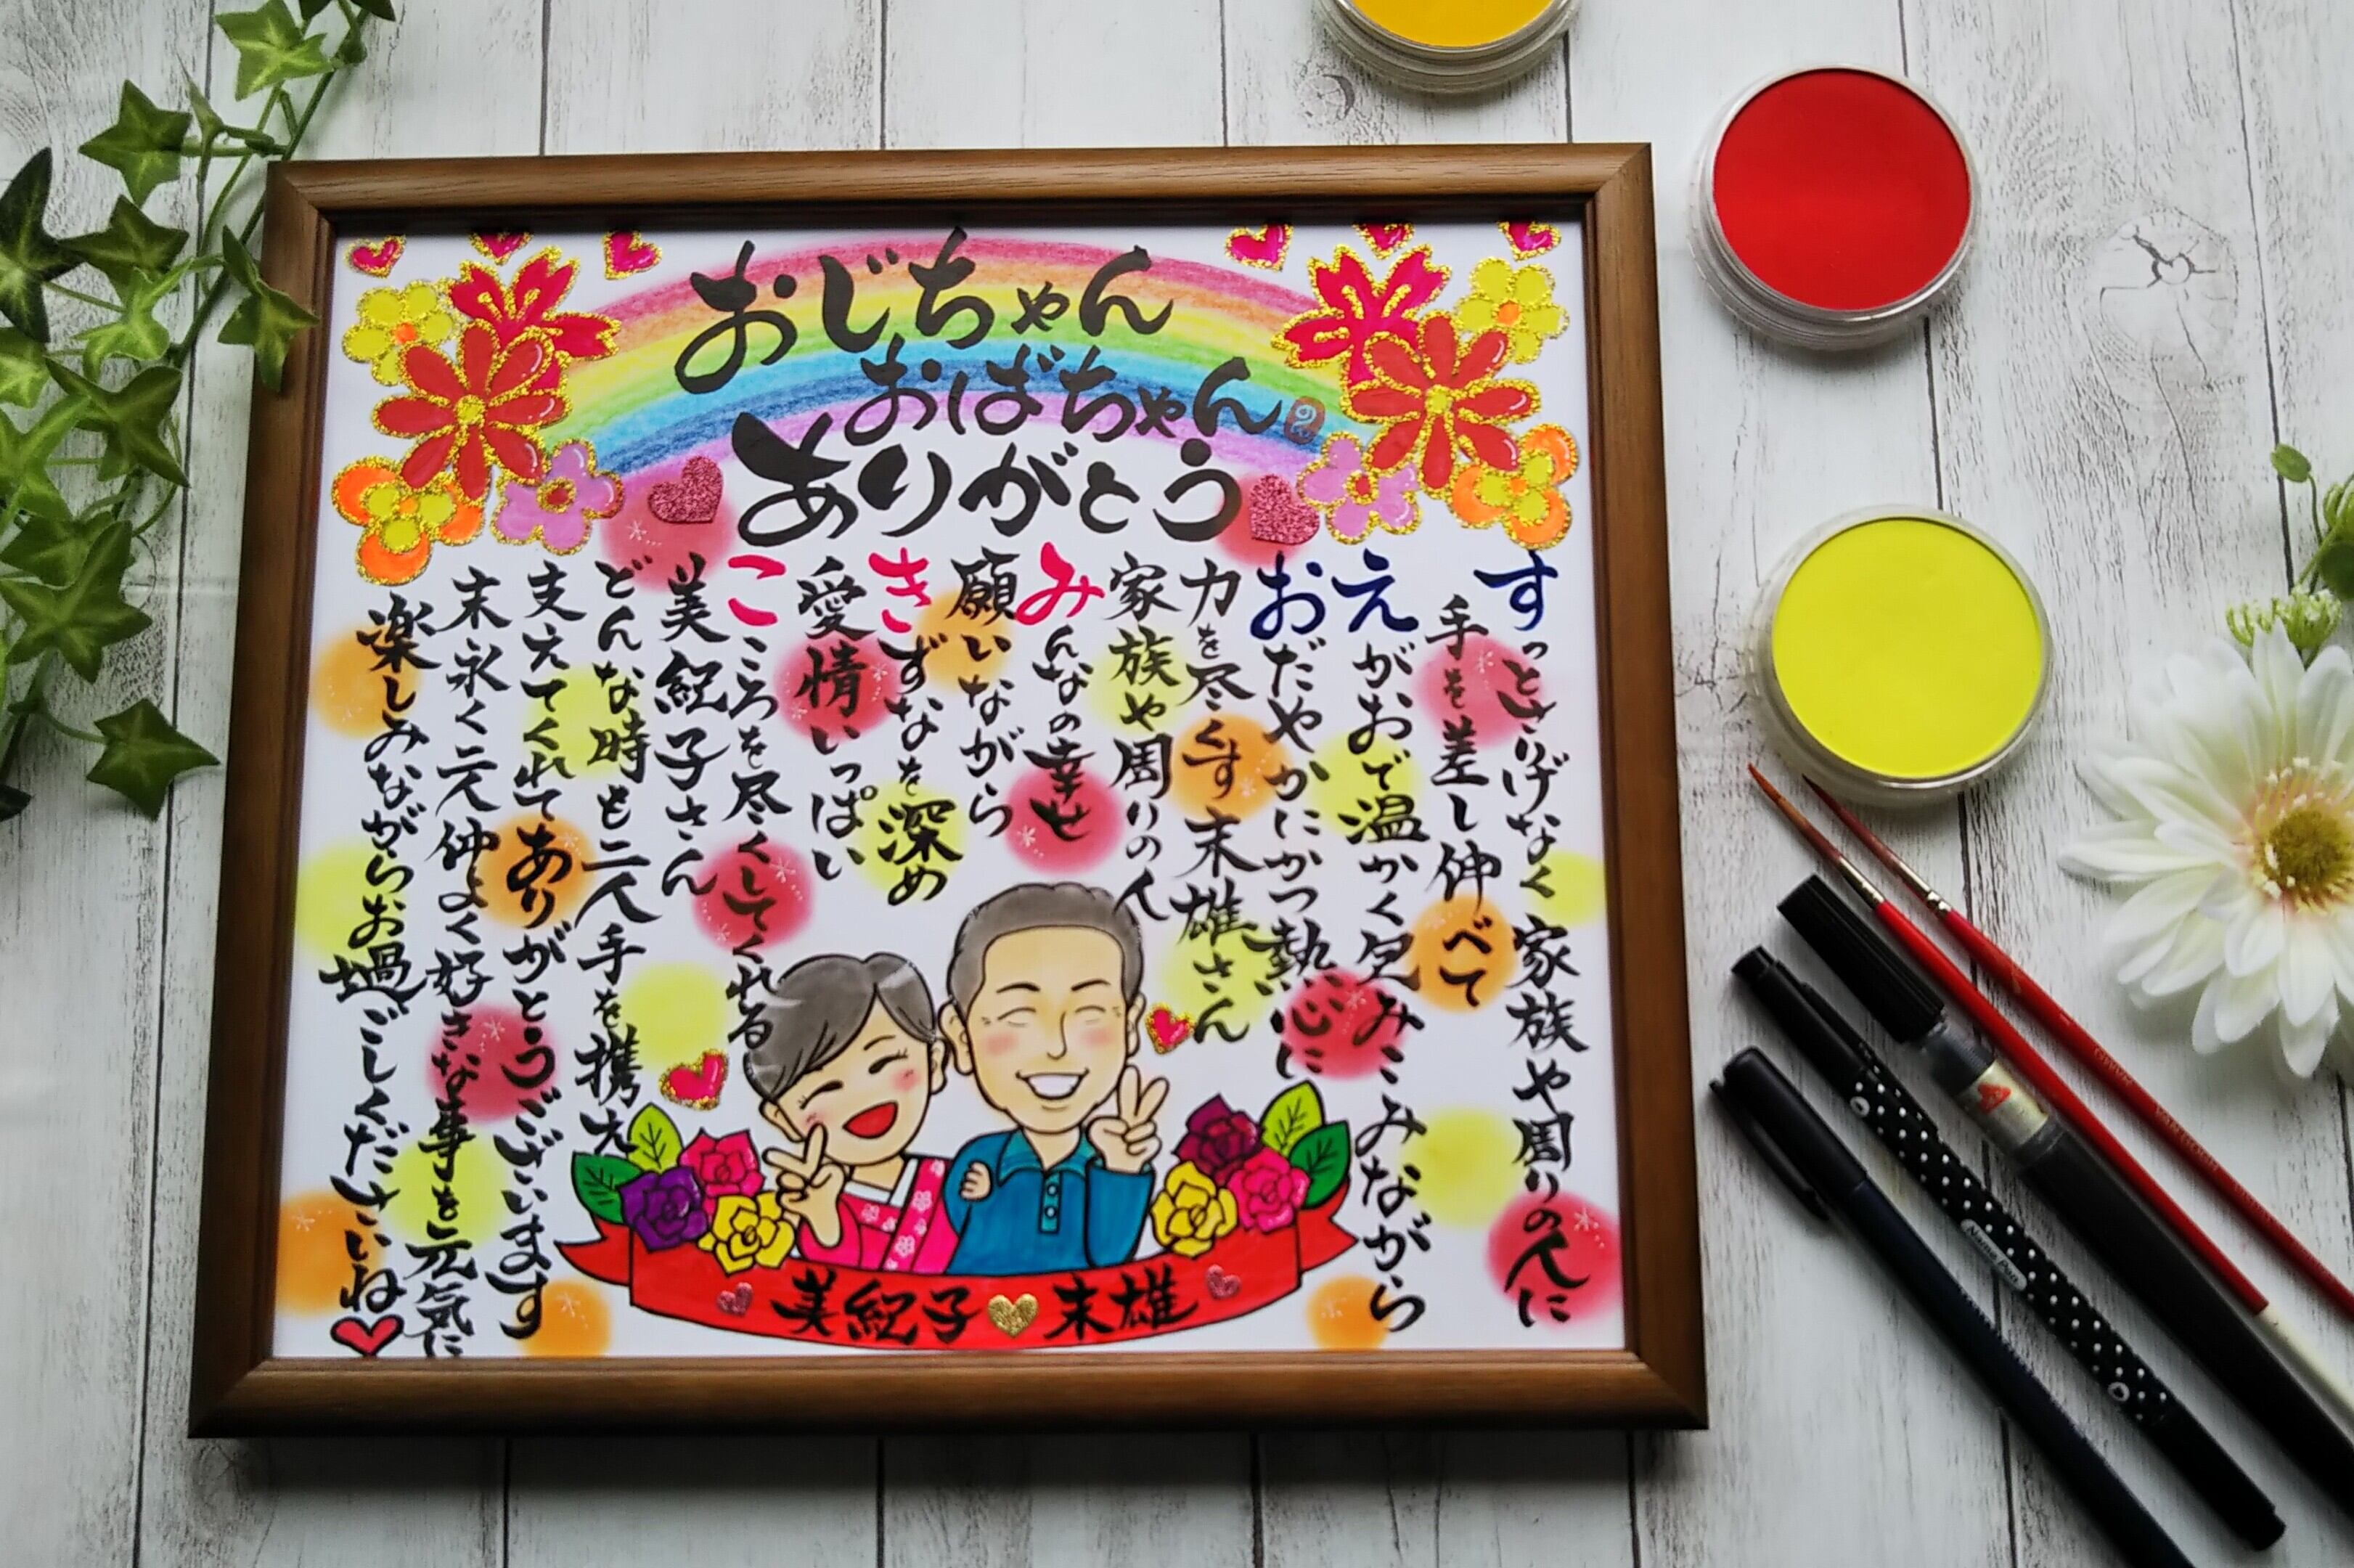 おじちゃん
おばちゃん
ありがとう
すっとさりげなく家族や周りの人に
手を差し伸べて
えがおで温かく見みこみながら
おだやかにかつ熱い心に
力を尽くす末雄さん
家族や周りの人
みんなの幸せ
願いながら
きずなを深め
愛情いっぱい
こころを尽くしてくれる
美紀子さん
どんな時も二人手を携え
支えてくれてありがとうございます
末永く元仲よく好きな事を元気に
楽しみながらお過ごしくださいね
美紀子 末雄
Name Pen